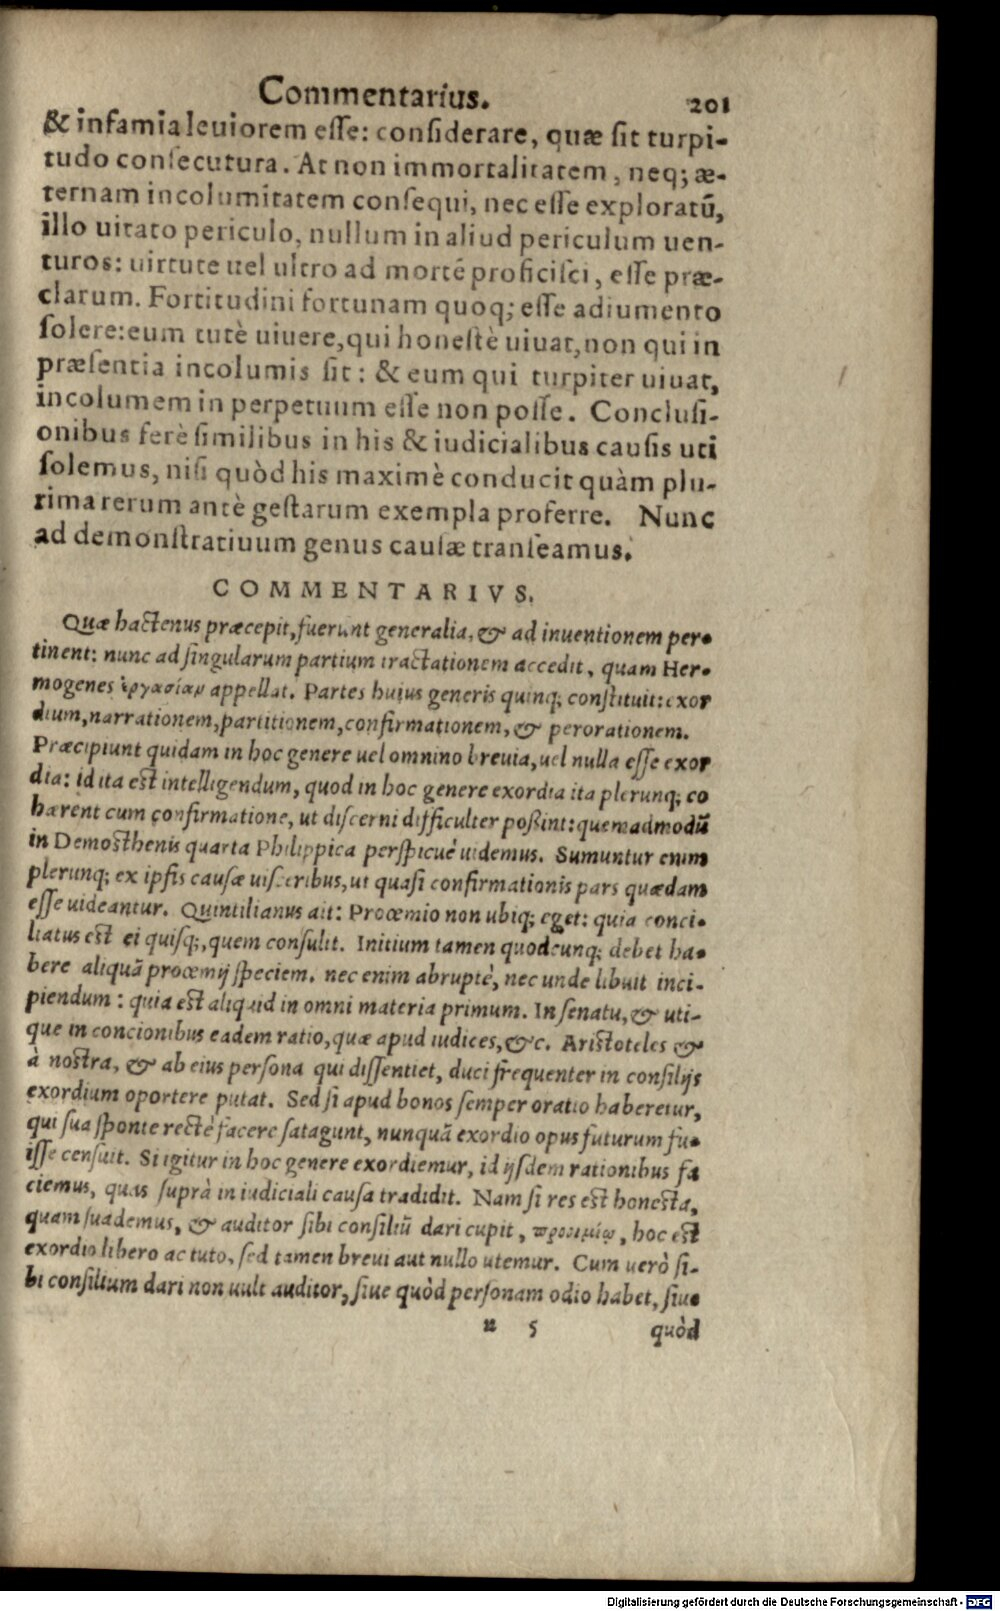 Commentarius. 201
& infamia leuiorem esse: considerare, quæ sit turpi-
tudo consecutura. At non immortalitatem, neq; æ-
ternam incolumitatem consequi, nec esse exploratũ,
illo uitato periculo, nullum in aliud periculum uen-
turos: uirtute uel ultro ad mortẽ proficisci, esse præ-
clarum. Fortitudini fortunam quoq; esse adiumento
solere: eum tutè uiuere, qui honestè uiuat, non qui in
præsentia incolumis sit: & eum qui turpiter uiuat,
incolumem in perpetuum esse non posse. Conclusi-
onibus ferè similibus in his & iudicialibus causis uti
solemus, nisi quòd his maximè conducit quàm plu-
rima rerum antè gestarum exempla proferre. Nunc
ad demonstratiuum genus causæ transeamus.
COMMENTARIVS.
Quæ hactenus præcepit, fuerunt generalia, & ad inuentionem per-
tinent: nunc ad singularum partium tractationem accedit, quam Her-
mogenes ἐργασίαν appellat. Partes huius generis quinq; constituit: exor
dium, narrationem, partitionem, confirmationem, & perorationem.
Præcipiunt quidam in hoc genere uel omnino breuia, uel nulla esse exor
dia: id ita est intelligendum, quod in hoc genere exordia ita plerunq; co
hærent cum confirmatione, ut discerni difficulter poßint: quemadmodũ
in Demosthenis quarta Philippica perspicuè uidemus. Sumuntur enim
plerunq; ex ipsis causæ uisceribus, ut quasi confirmationis pars quædam
esse uideantur. Quintilianus ait: Proœmio non ubiq; eget: quia conci-
liatus est ei quisq;, quem consulit. Initium tamen quodcunq; debet ha-
bere aliquã proœmij speciem. nec enim abruptè, nec unde libuit inci-
piendum: quia est aliquid in omni materia primum. In senatu, & uti-
que in concionibus eadem ratio, quæ apud iudices, &c. Aristoteles &
à nostra, & ab eius persona qui dissentiet, duci frequenter in consilijs
exordium oportere putat. Sed si apud bonos semper oratio haberetur,
qui sua sponte rectè facere satagunt, nunquã exordio opus futurum fu-
isse censuit. Si igitur in hoc genere exordiemur, id ijsdem rationibus fa
ciemus, quas suprà in iudiciali causa tradidit. Nam si res est honesta,
quam suademus, & auditor sibi consiliũ dari cupit, προοιμίῳ, hoc est
exordio libero ac tuto, sed tamen breui aut nullo utemur. Cum uerò si-
bi consilium dari non uult auditor, siue quòd personam odio habet, siue
n 5 quòd
Digitalisierung gefördert durch die Deutsche Forschungsgemeinschaft - DFG